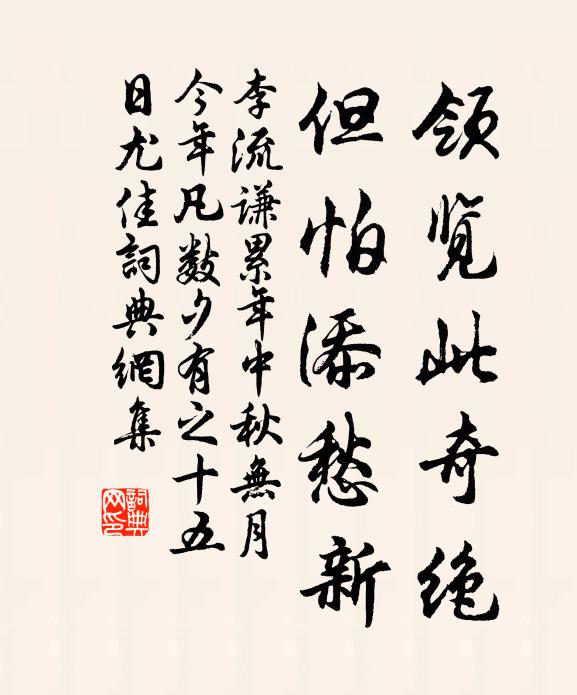 领览此奇绝
但怕添愁新
李流谦累年中秋無月
今年凡数夕有之十五
日尤佳詞典網集
詞典
网印